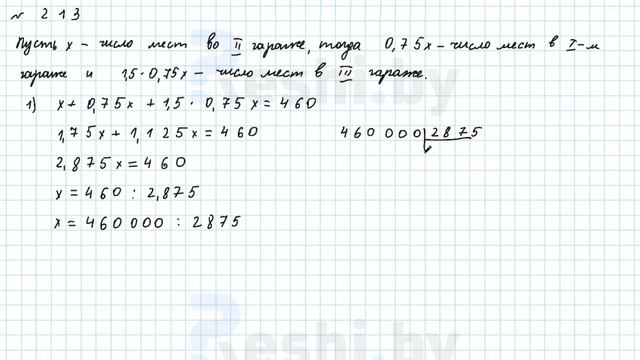 № 213
Пусть x – число мест во II гараже, тогда 0,75x – число мест в I-м
гараже и 1,5·0,75x – число мест в III гараже.
1) x + 0,75x + 1,5 · 0,75x = 460
1,75x + 1,125x = 460
460 000 | 2875
2,875x = 460
x = 460 : 2,875
x = 460000 : 2875
Reshi.by